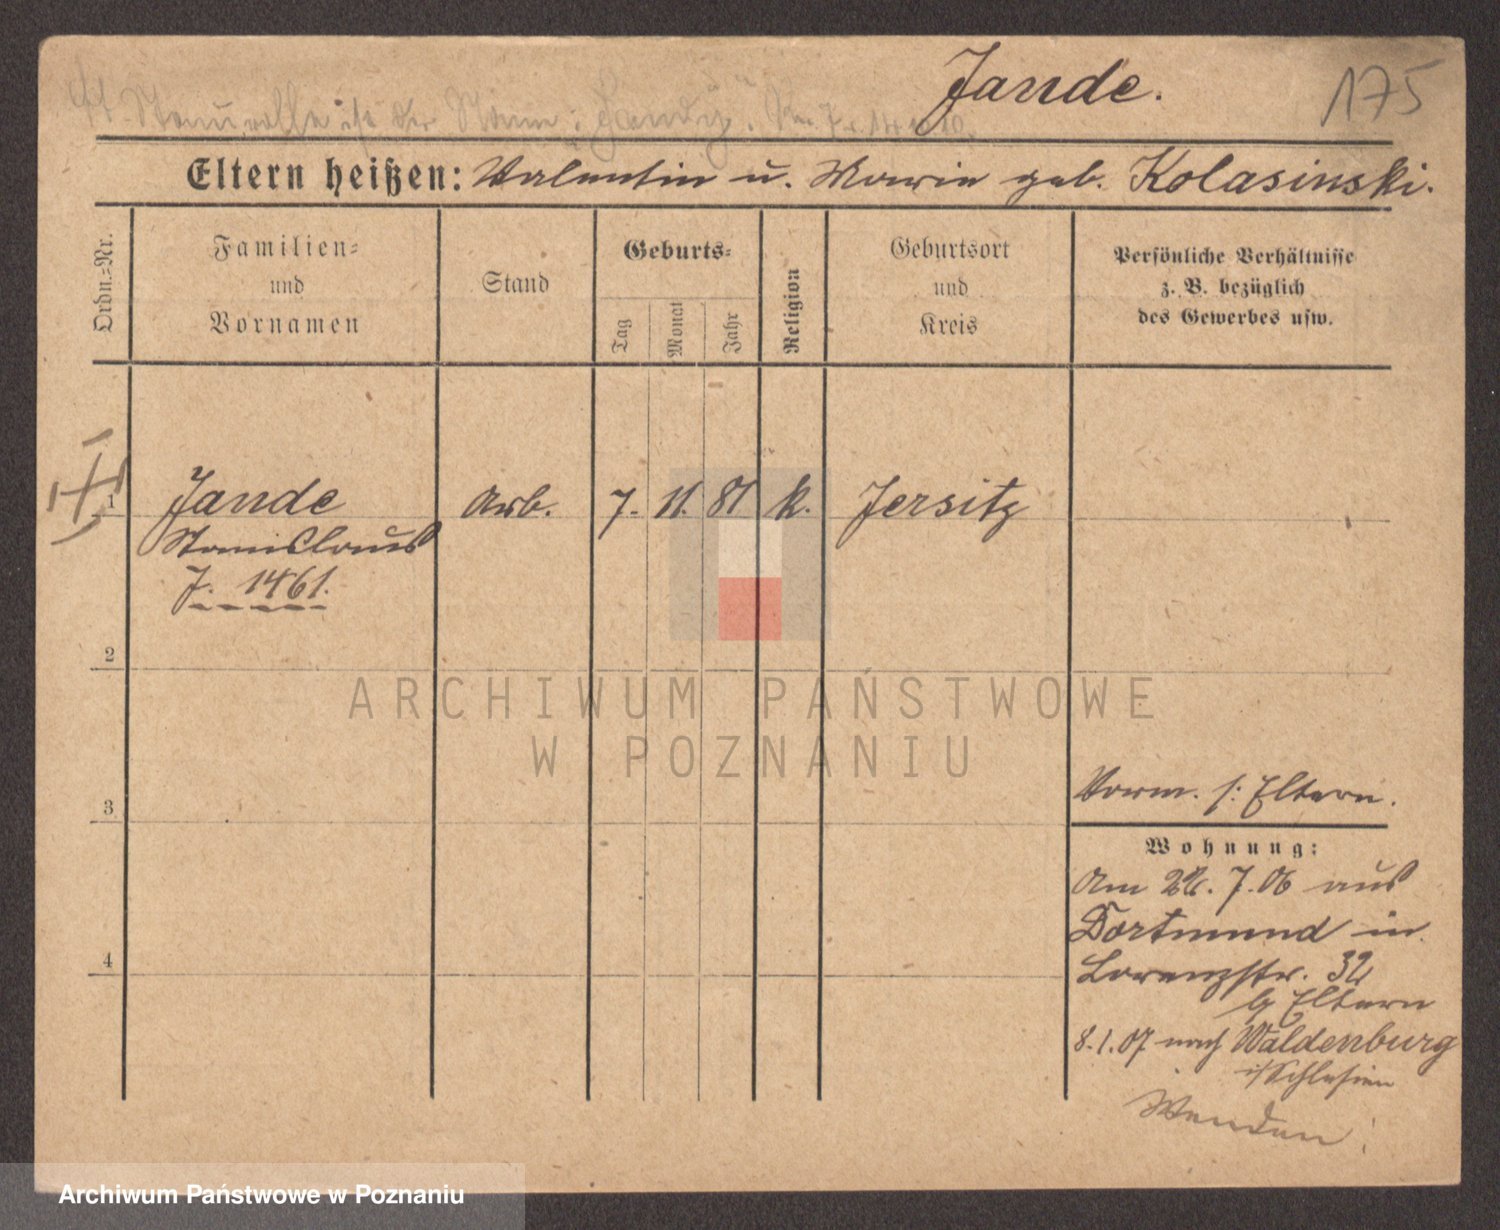 Jande.
175
Stammrolle ist der Name:
Eltern heißen: Valentin u. Marie geb. Kolasinski.
Ordn.-Nr.
Familien-
und
Vornamen
Stand
Geburts-
Tag
Monat
Jahr
Religion
Geburtsort
und
Kreis
Persönliche Verhältnisse
z. B. bezüglich
des Gewerbes usw.
1
Jande
Arb.
7.
11.
81
k.
Jersitz
Stanislaus
J. 1461.
2
3
4
Vorm. s: Eltern.
Wohnung:
Am 7.06 aus
Dortmund in
Lorenzstr. 32
b/ Eltern
8.1.07 nach Waldenburg
i/Schlesien
Wenden!
ARCHIWUM PAŃSTWOWE
W POZNANIU
Archiwum Państwowe w Poznaniu